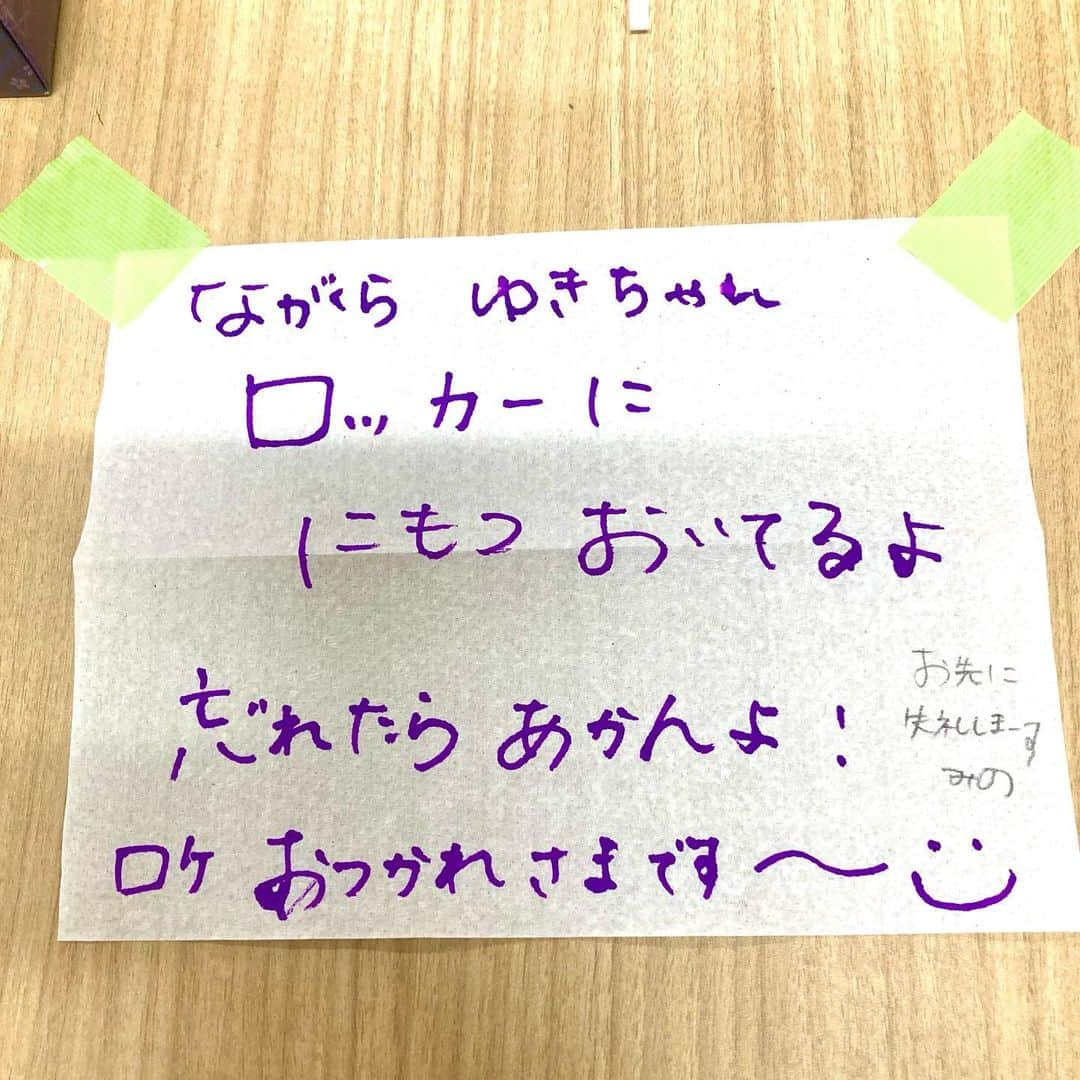 ながくら ゆきちゃん
ロッカーに
にもつ おいてるよ
忘れたら あかんよ！
お先に
失礼しまーす
みの
ロケ おつかれさまです〜